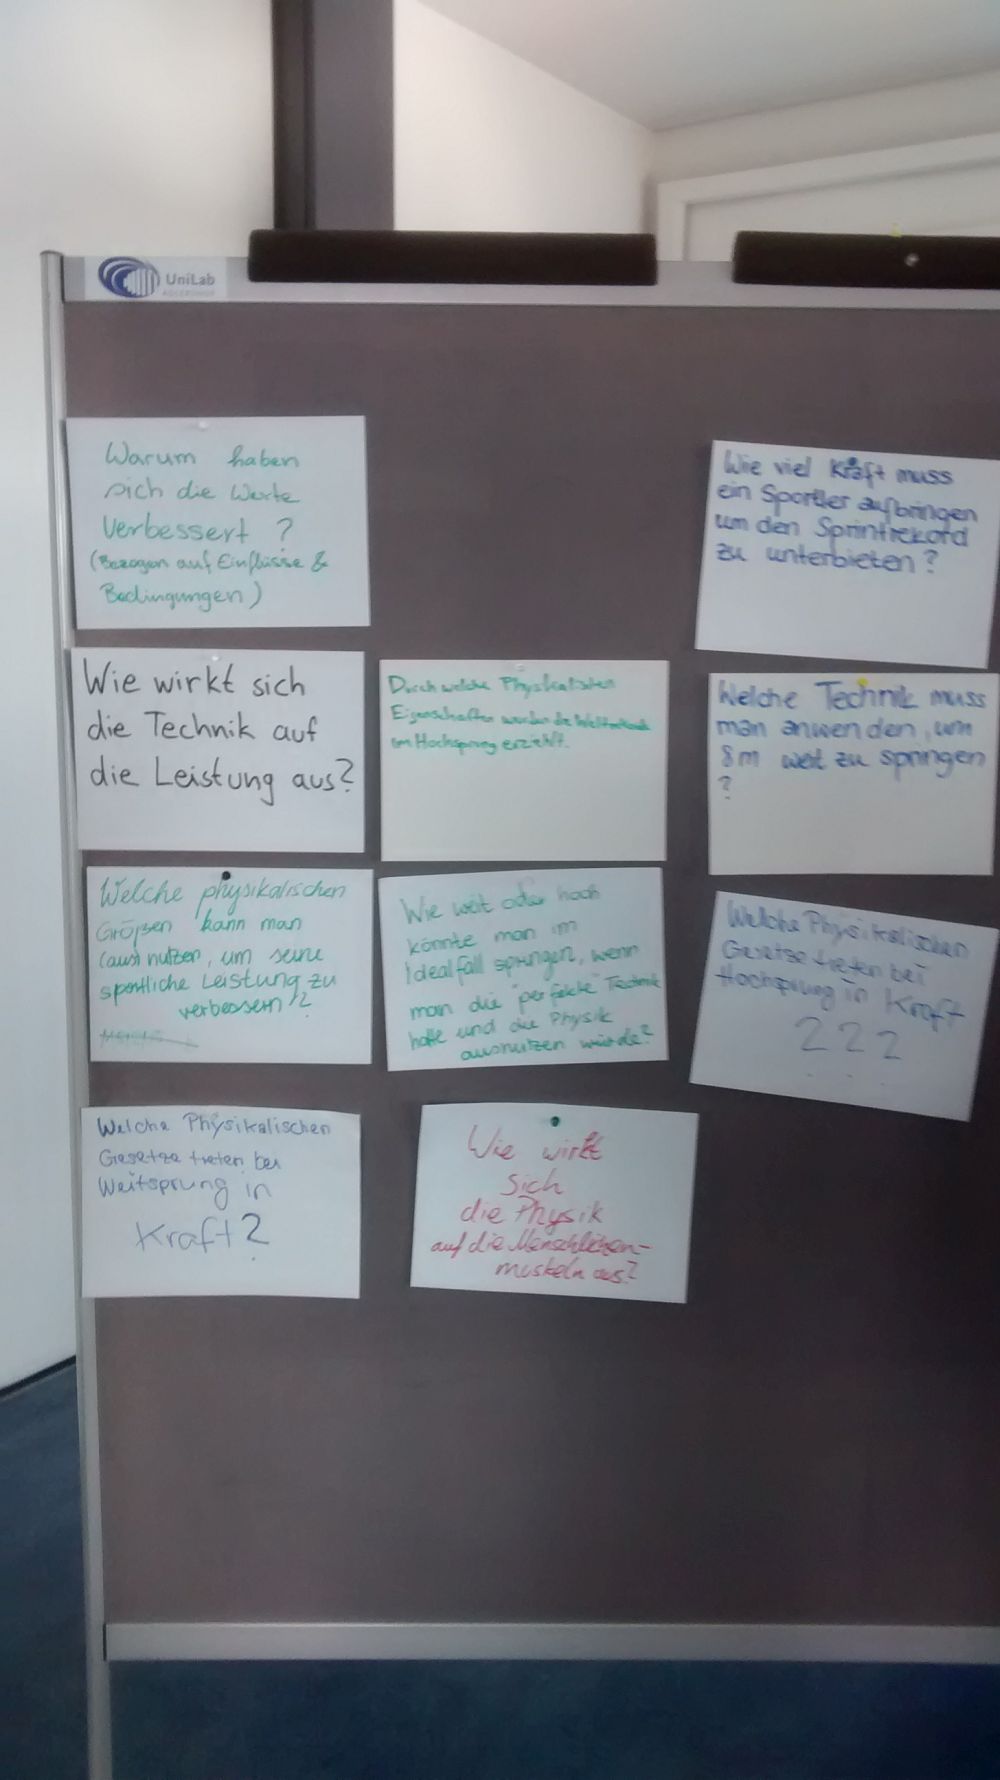 UniLab
ADLERSHOF
Warum haben
sich die Werte
verbessert ?
(Bezogen auf Einflüsse &
Bedingungen)
Wie viel Kraft muss
ein Sportler aufbringen
um den Sprintrekord
zu unterbieten?
Wie wirkt sich
die Technik auf
die Leistung aus?
Durch welche Physikalischen
Eigenschaften wurden die Weltrekorde
im Hochsprung erziehlt.
Welche Technik muss
man anwenden, um
8m weit zu springen
?
Welche physikalischen
Größen kann man
(aus) nutzen, um seine
sportliche Leistung zu
verbessern?
Wie weit oder hoch
könnte man im
Idealfall springen, wenn
man die "perfekte" Technik
hätte und die Physik
ausnutzen würde?
Welche Physikalischen
Gesetze treten bei
Hochsprung in Kraft
???
Welche Physikalischen
Gesetze treten bei
Weitsprung in
Kraft?
Wie wirkt
sich
die Physik
auf die Menschlichen-
muskeln aus?